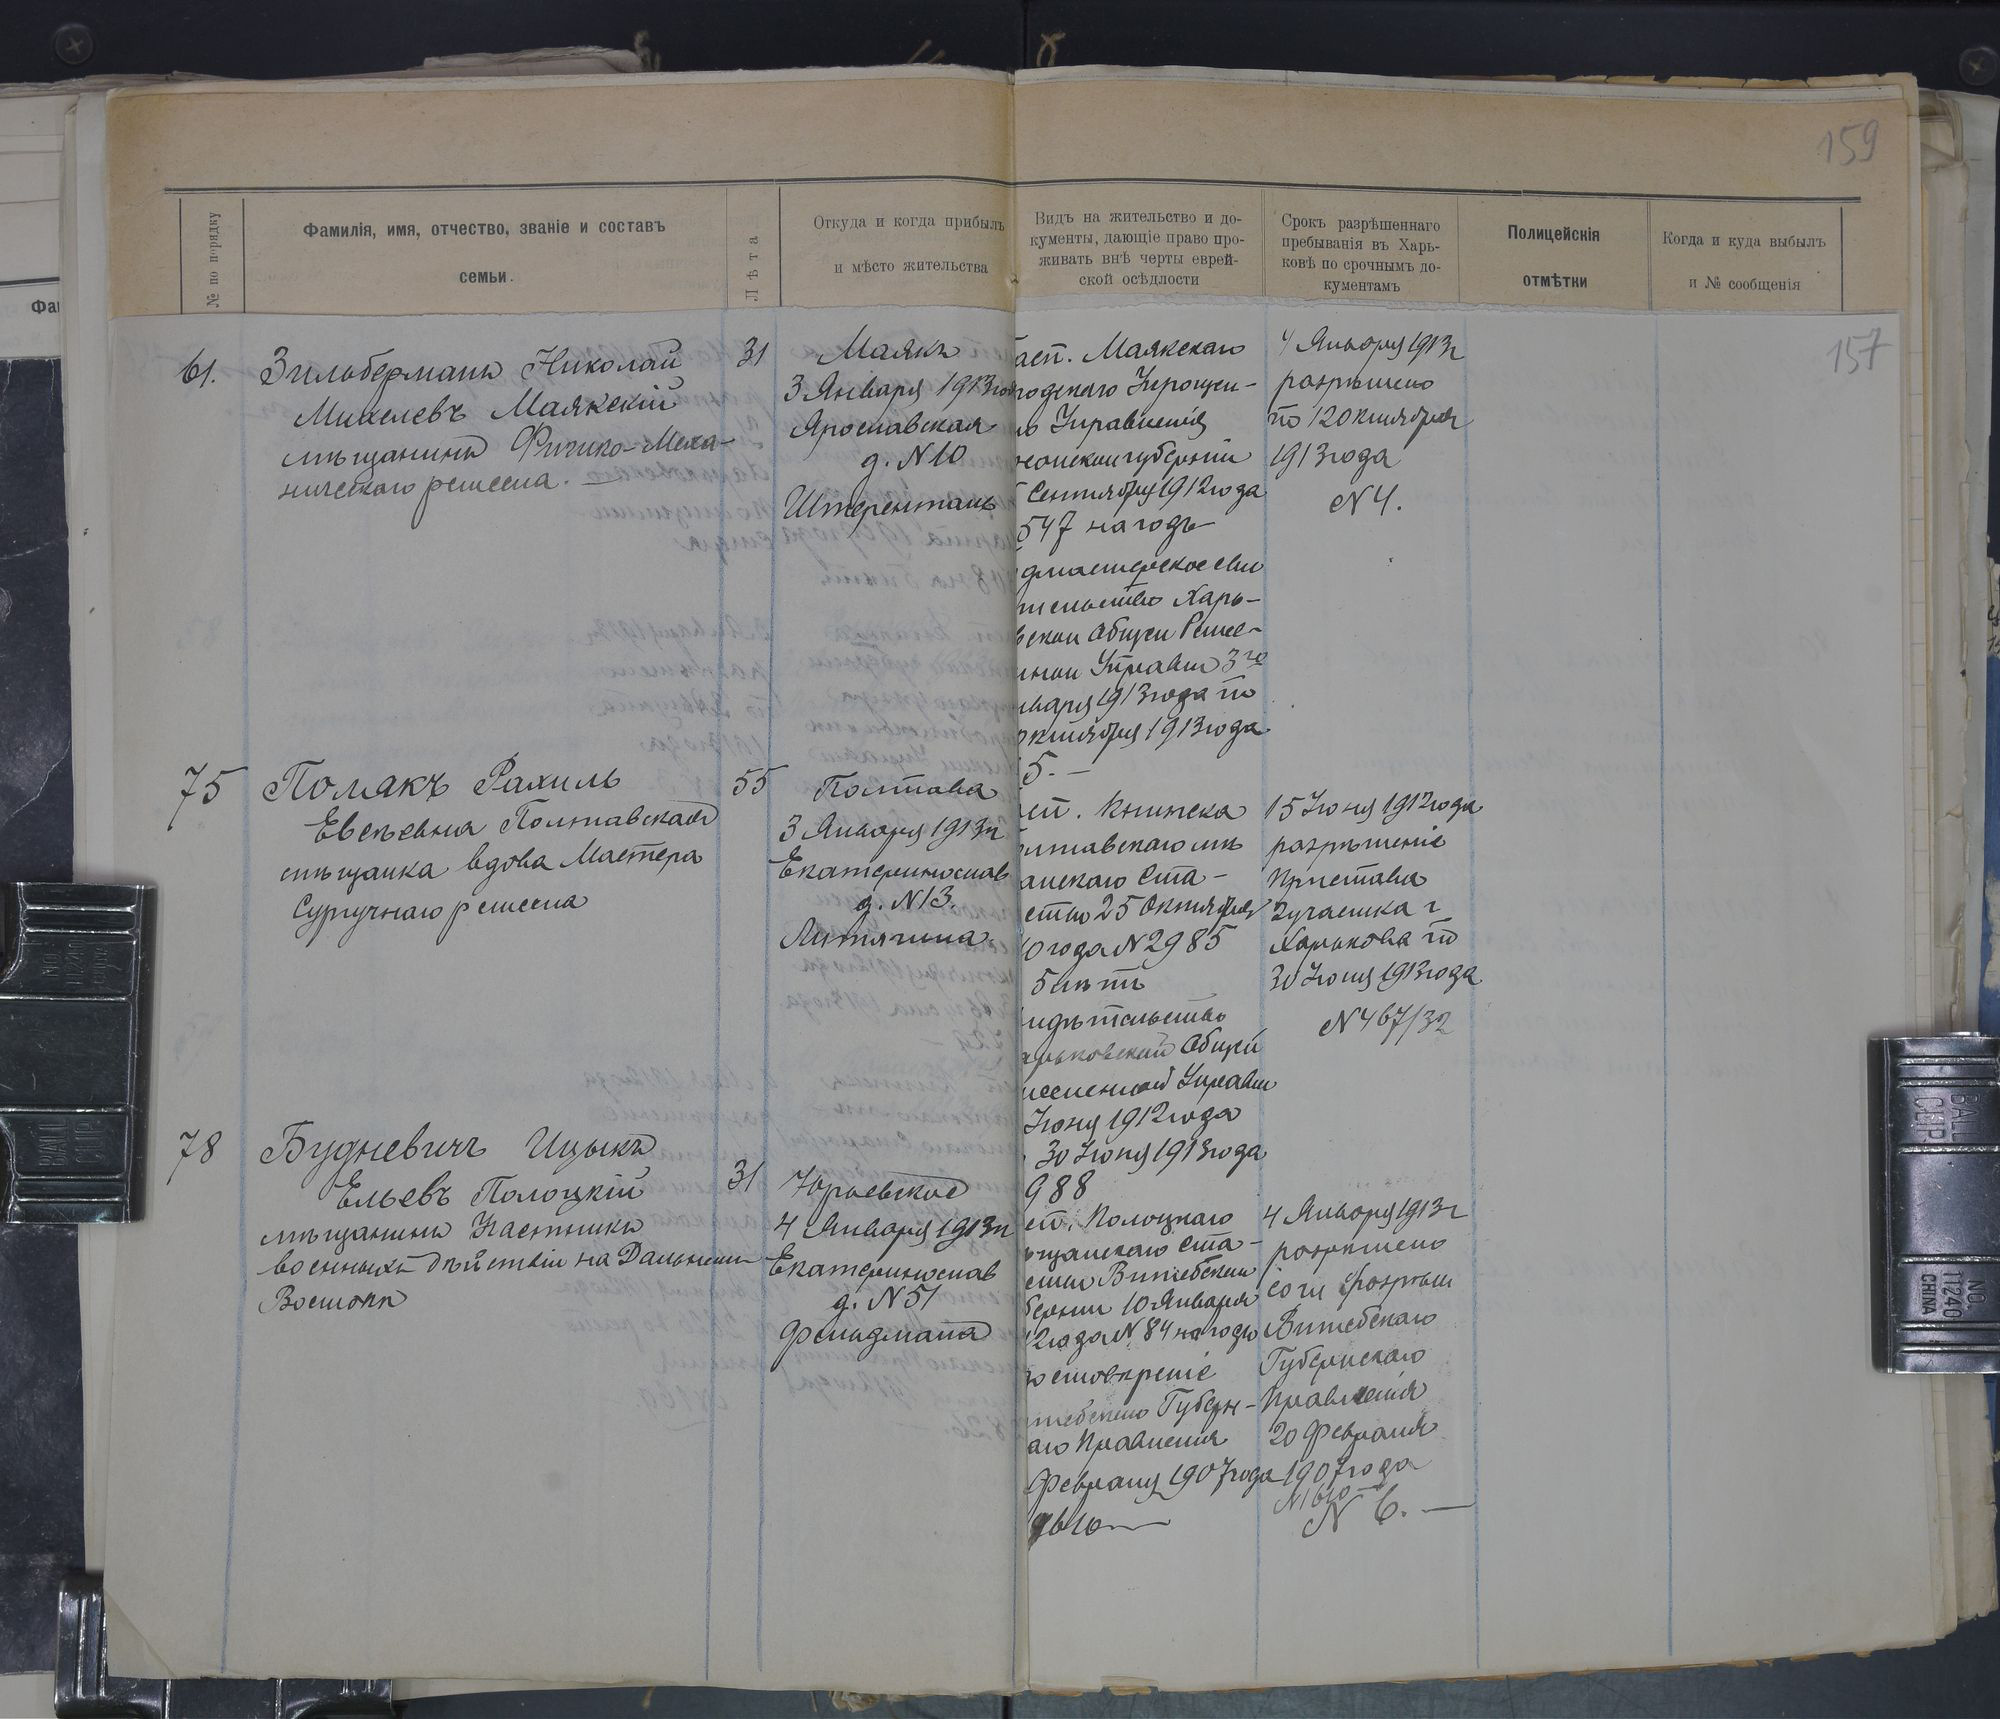 159
№ по порядку
Фамилія, имя, отчество, званіе и составъ
семьи.
Лѣта
Откуда и когда прибылъ
и мѣсто жительства
Видъ на жительство и до-
кументы, дающіе право про-
живать внѣ черты еврей-
ской осѣдлости
Срокъ разрѣшеннаго
пребыванія въ Харь-
ковѣ по срочнымъ до-
кументамъ
Полицейскія
отмѣтки
Когда и куда выбылъ
и № сообщенія
Фа
157
61.
Зильберманъ Николай
Михелевъ Маякскій
мѣщанинъ Физико-Меха-
ническаго ремесла.
31
Маякъ
3 Января 1913 год
Ярославская
д. N 10
Штеренталь
асп. Маякскаго
родскаго Упрощен-
го Управленія
рсонской губерніи
Сентября 1912 года
547 на годъ
дмастерское сви
тельство Харь-
вской Общей Ремес-
нной Управы 3го
нваря 1913 года по
октября 1913 года
5.—
4 Января 1913 г
разрѣшено
по 1 Октября
1913 года
N 4.
75
Полякъ Рахиль
Евсѣевна Полтавская
мѣщанка вдова Мастера
Сургучнаго ремесла
55
Полтава
3 Января 1913 г
Екатеринослав
д. N 13.
Литягина
сп. Книжка
олтавскаго мѣ
анскаго Ста-
сты 25 Октября
0 года N 2985
5 лѣтъ
идѣтельство
арьковской Общей
месленной Управы
Іюня 1912 года
30 Іюня 1913 года
988
15 Іюня 1912 года
разрѣшеніе
Пристава
2 участка г
Харькова по
30 Іюня 1913 года
N 467/32
78
Будневичъ Ицыкъ
Ельевъ Полоцкій
мѣщанинъ Участникъ
военныхъ дѣйствій на Дальнемъ
Востокѣ
31
Юрьевское
4 Января 1913 г
Екатеринослав
д. N 51
Фельдмана
сп. Полоцкаго
ѣщанскаго Ста-
сты Витебской
берніи 10 Января
12 года N 84 на годъ
достовѣреніе
итебскаго Губерн-
аго Правленія
Февраля 1907 года
1610—
4 Января 1913 г
разрѣшено
Витебскаго
Губернскаго
Правленія
20 Февраля
1907 года
N 1610—
N 6.—